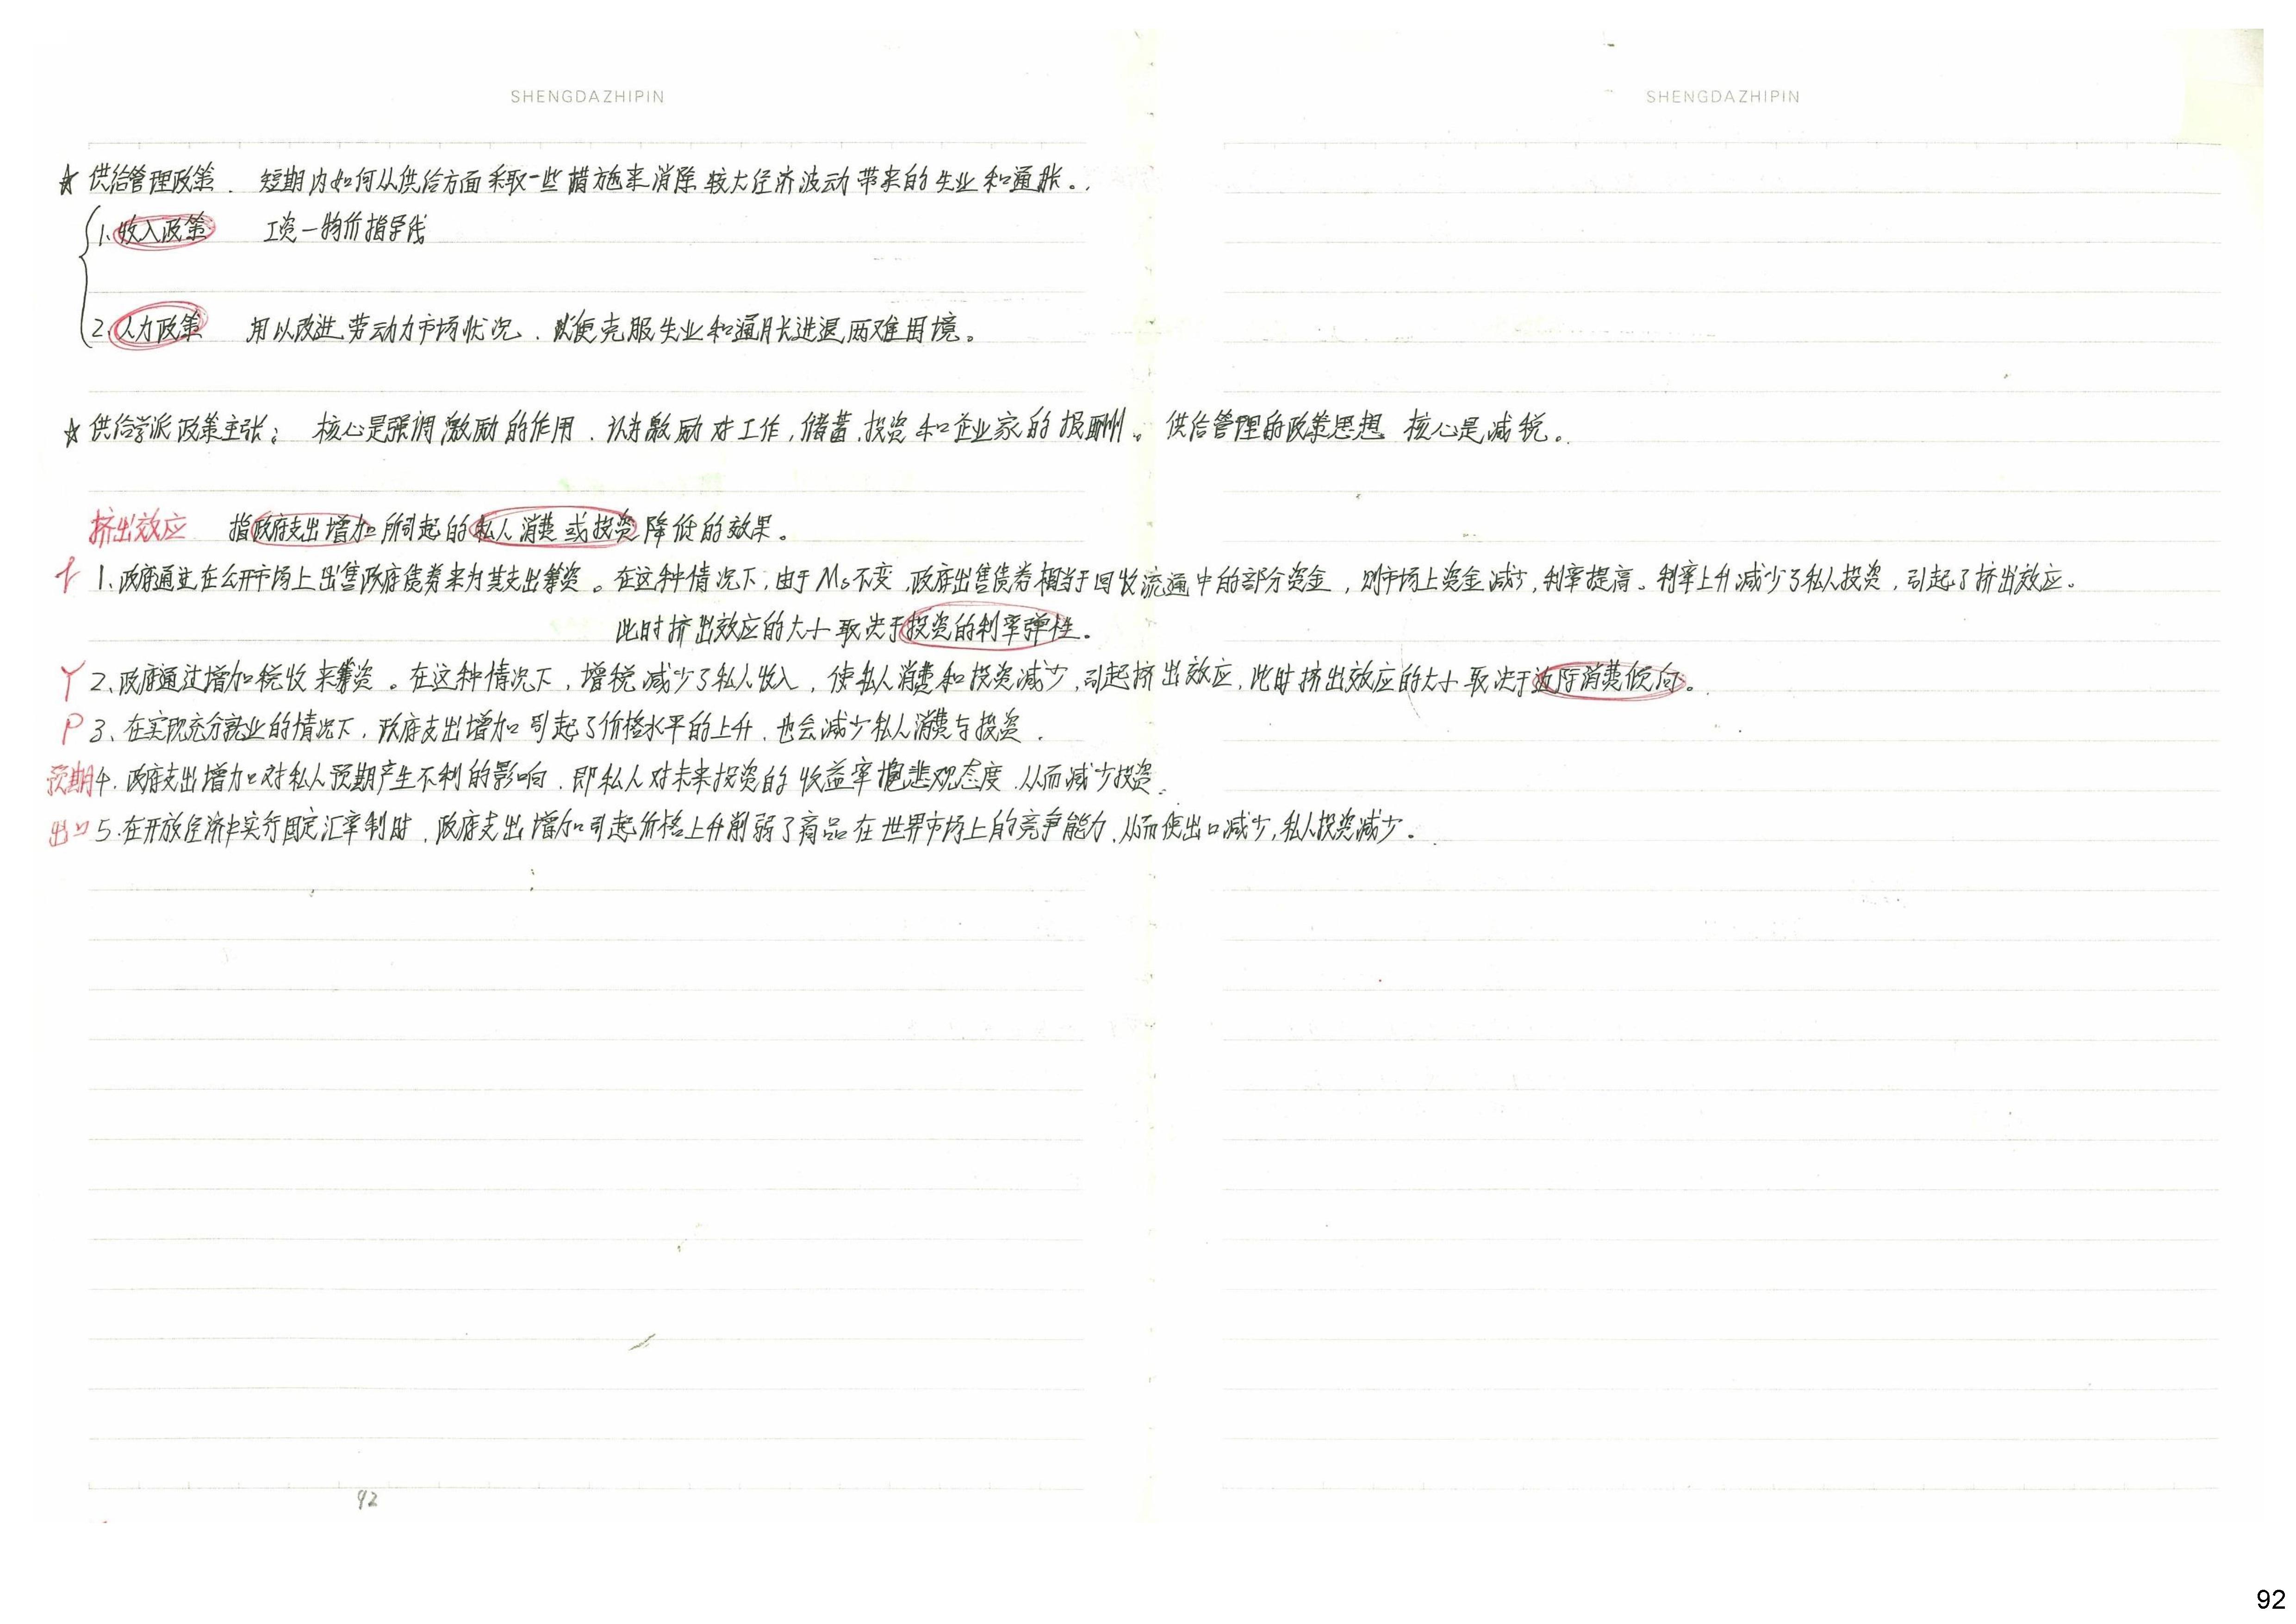 SHENGDAZHIPIN
SHENGDAZHIPIN
☆ 供给管理政策. 短期内如何从供给方面采取一些措施来消除较大经济波动带来的失业和通胀。
1、收入政策 工资—物价指导线
2、人力政策 用以改进劳动力市场状况、以便克服失业和通胀进退两难困境。
☆ 供给学派政策主张: 核心是强调激励的作用、认为激励对工作,储蓄,投资和企业家的报酬。供给管理的政策思想 核心是减税。
挤出效应 指政府支出增加所引起的私人消费或投资降低的效果。
r 1、政府通过在公开市场上出售政府债券来为其支出筹资。在这种情况下,由于Ms不变,政府出售债券相当于回收流通中的部分资金,则市场上资金减少,利率提高。利率上升减少了私人投资,引起了挤出效应。
此时挤出效应的大小取决于投资的利率弹性。
Y 2、政府通过增加税收来筹资。在这种情况下,增税减少了私人收入,使私人消费和投资减少,引起挤出效应,此时挤出效应的大小取决于边际消费倾向。
P 3、在实现充分就业的情况下,政府支出增加引起了价格水平的上升、也会减少私人消费与投资.
预期 4. 政府支出增加对私人预期产生不利的影响、即私人对未来投资的收益率抱悲观态度、从而减少投资.
出口 5.在开放经济中实行固定汇率制时,政府支出增加引起价格上升削弱了商品在世界市场上的竞争能力,从而使出口减少,私人投资减少。
92
92